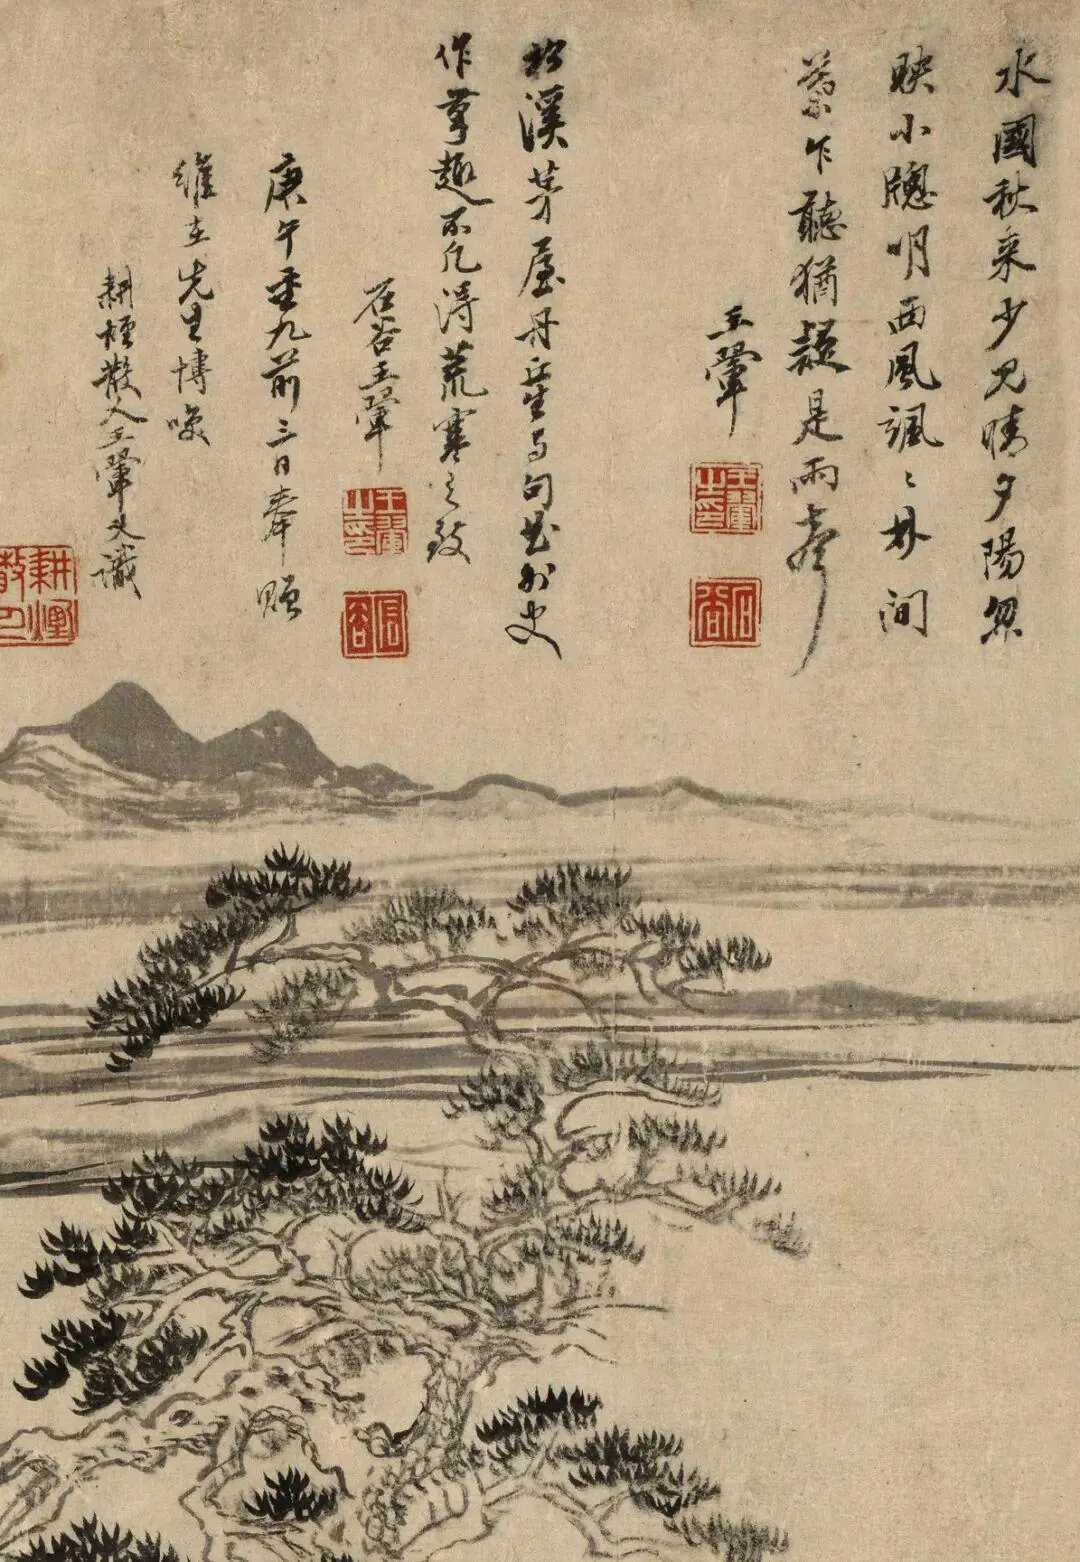 水國秋来少見晴夕陽忽
映小牕明西風颯〻林間
葉乍聽猶疑是雨聲
王翬
王翬之印
石谷
松溪茅屋丹丘生与句曲外史
作筆趣不凡得荒寒之致
石谷王翬
王翬之印
石谷
庚午重九前三日奉贈
先生博咲
耕煙散人王翬又識
耕煙散人